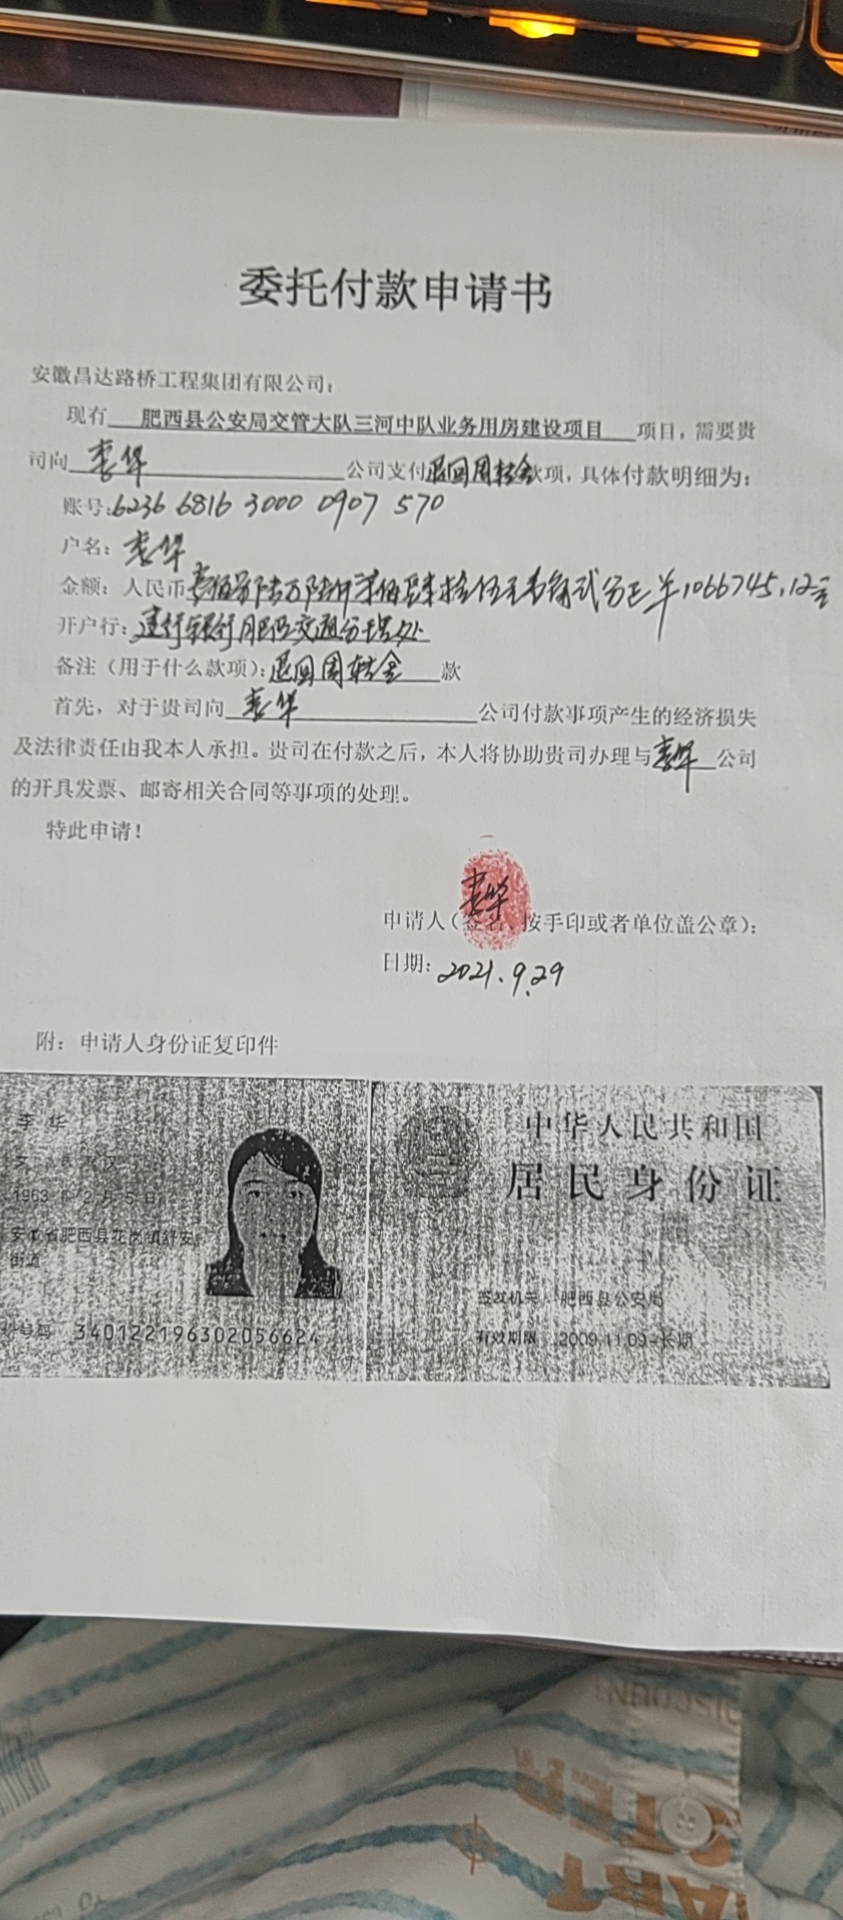 委托付款申请书
安徽昌达路桥工程集团有限公司：
现有 肥西县公安局交管大队三河中队业务用房建设项目 项目，需要贵
司向 李华 公司支付退回周转金款项，具体付款明细为：
账号：6236 6816 3000 0907 570
户名：李华
金额：人民币壹佰零陆万陆仟柒佰肆拾伍元壹角贰分正 ￥1066745.12元
开户行：建行银行肥西交通分理处
备注（用于什么款项）：退回周转金 款
首先，对于贵司向 李华 公司付款事项产生的经济损失
及法律责任由我本人承担。贵司在付款之后，本人将协助贵司办理与 李华 公司
的开具发票、邮寄相关合同等事项的处理。
特此申请！
李华
申请人（签名、按手印或者单位盖公章）：
日期：2021.9.29
附：申请人身份证复印件
李华
女 汉
1963年2月5日
安徽省肥西县花岗镇舒安
街道
号码 340122196302056624
中华人民共和国
居民身份证
签发机关 肥西县公安局
有效期限 2009.11.09-长期
DISCOUNT
ART
STER